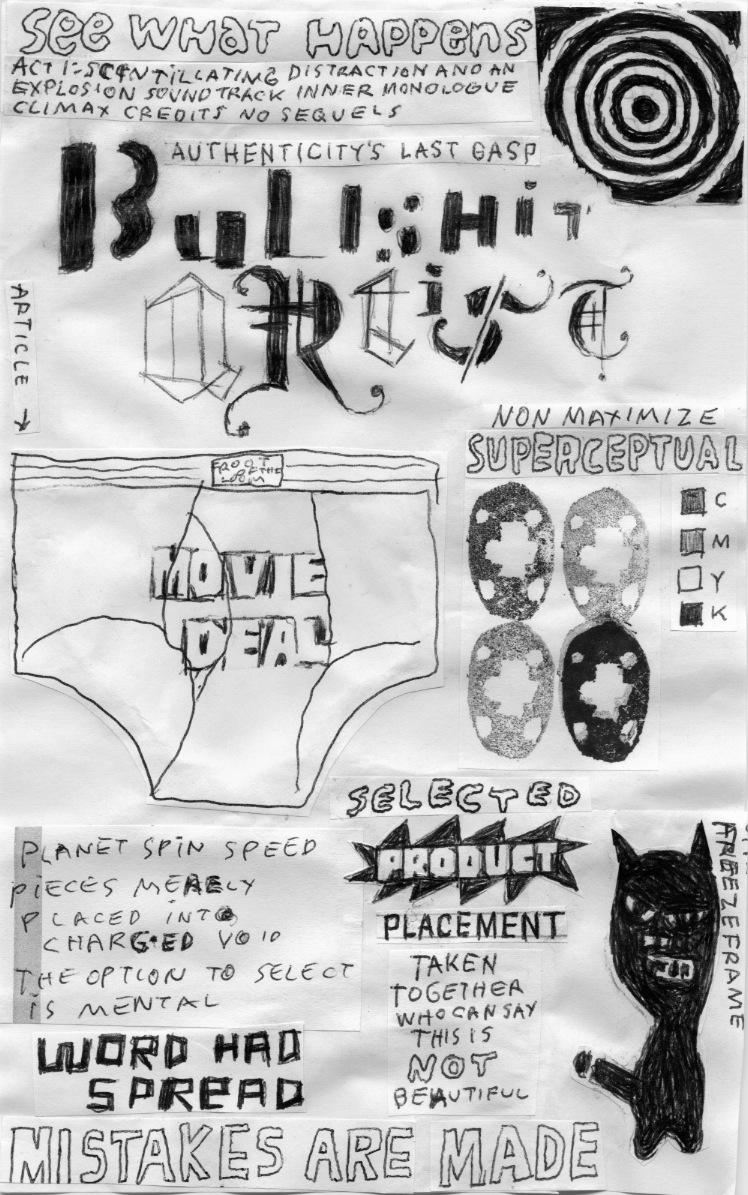 See WHAT HAPPENS
ACT 1: SCINTILLATING DISTRACTION AND AN
EXPLOSION SOUNDTRACK INNER MONOLOGUE
CLIMAX CREDITS NO SEQUELS
AUTHENTICITY'S LAST GASP
BULLSHIT
ARTIST
ARTICLE
NON MAXIMIZE
SUPERCEPTUAL
C
M
Y
K
FROOT
OF THE
LOOM
MOVIE
DEAL
SELECTED
PRODUCT
PLACEMENT
PLANET SPIN SPEED
PIECES MERELY
PLACED INTO
CHARGED VOID
THE OPTION TO SELECT
iS MENTAL
TAKEN
TOGETHER
WHO CAN SAY
THIS IS
NOT
BEAUTIFUL
FREEZE FRAME
WORD HAD
SPREAD
MISTAKES ARE MADE